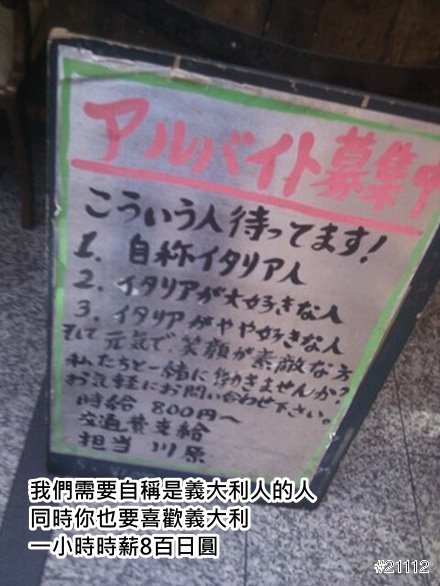 アルバイト募集中
こういう人待ってます!
1. 自称イタリア人
2. イタリアが大好きな人
3. イタリアがやや好きな人
そして元気で、笑顔が素敵な方
私たちと一緒に働きませんか?
お気軽にお問い合わせ下さい。
時給 800円〜
交通費支給
担当 川原
我們需要自稱是義大利人的人
同時你也要喜歡義大利
一小時時薪8百日圓
#21112